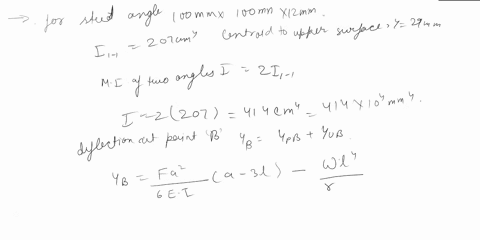 → for steel angle 100mm x 100mm x 12mm.
I₁₋₁ = 207cm⁴ Centroid to upper surface, y = 29mm
M.I of two angles I = 2I₁₋₁
I = 2(207) = 414cm⁴ = 414 × 10⁴ mm⁴.
deflection at point 'B' y_B = y_PB + y_UB
y_B = Fa²/6E.I (a - 3l) - Wl⁴/8